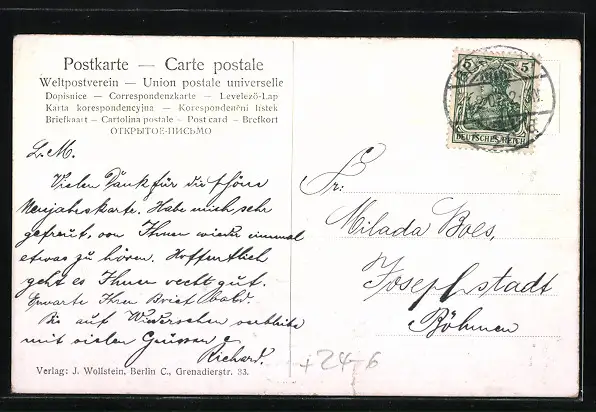 Postkarte — Carte postale
Weltpostverein — Union postale universelle
Dopisnice — Correspondenzkarte — Levelező-Lap
Karta korespondencyjna — Korespondenční lístek
Briefkaart — Cartolina postale — Post card — Brefkort
ОТКРЫТОЕ-ПИСЬМО
L. M.
Vielen Dank für die schöne
Neujahrskarte. Habe mich sehr
gefreut, von Ihnen wieder einmal
etwas zu hören. Hoffentlich
geht es Ihnen recht gut.
Erwarte Ihren Brief bald.
Bis auf Wiedersehen verbleibe
mit vielen Grüssen
Richard.
Verlag: J. Wollstein, Berlin C., Grenadierstr. 33.
5 5
DEUTSCHES REICH
Fr:
Milada Boes,
Josephstadt
Böhmen
+24-6